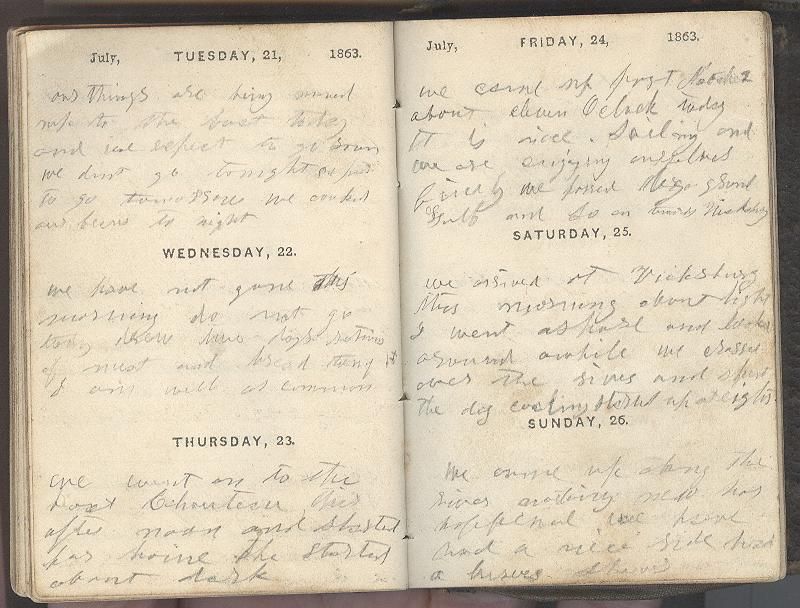 July, TUESDAY, 21, 1863.
our things are being moved
up to the boat today
and we expect to go soon
we dont go tonight
to go tomorrow we cooked
our beans to night
WEDNESDAY, 22.
we have not gone this
morning do not go
today drew two days rations
of meat and bread
I am well as common
THURSDAY, 23.
we went on to the
boat Chouteau this
after noon and started
for home she started
about dark
July, FRIDAY, 24, 1863.
we came up past Natchez
about eleven Oclock today
It is nice . Sailing and
we are enjoying ourselves
finely we passed grand
Gulf and so on towards Vicksburg
SATURDAY, 25.
we arived at Vicksburg
this morning about light
I went ashore and looked
around awhile we crossed
over the river and spent
the day started up at eight
SUNDAY, 26.
We came up along the
river nothing new has
happened we have
had a nice ride had
a shower